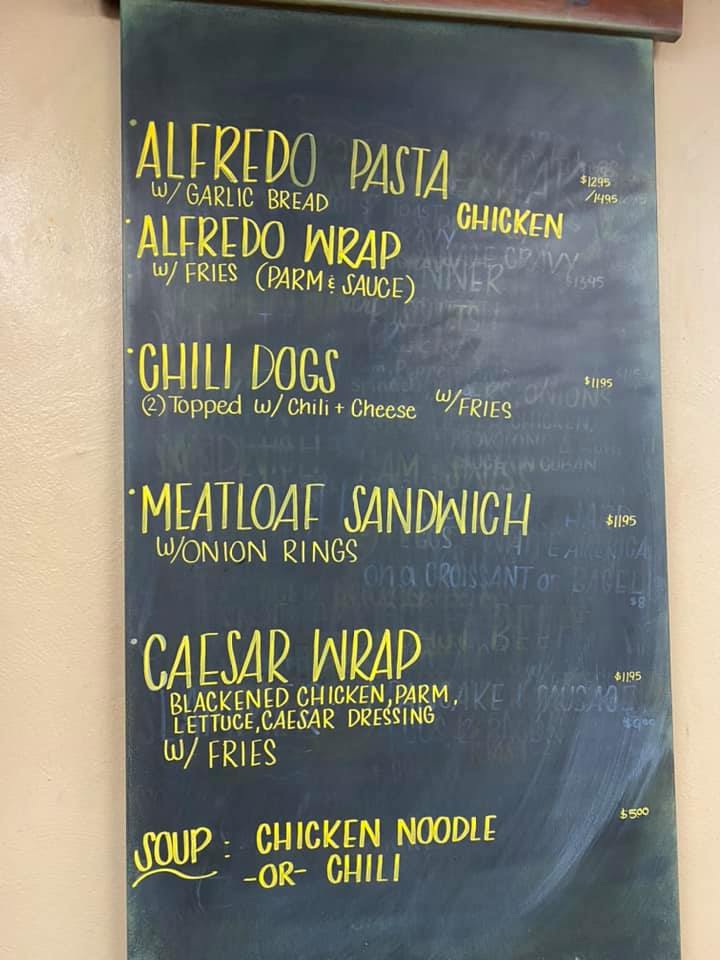 ALFREDO PASTA $12.95
/14.95
W/ GARLIC BREAD
CHICKEN
ALFREDO WRAP
W/ FRIES (PARM & SAUCE)
$13.95
CHILI DOGS $11.95
(2) Topped w/ Chili + Cheese W/FRIES
MEATLOAF SANDWICH $11.95
W/ONION RINGS
on a CROISSANT or BAGEL
$8
CAESAR WRAP $11.95
BLACKENED CHICKEN, PARM,
LETTUCE, CAESAR DRESSING
W/ FRIES
SOUP: CHICKEN NOODLE $5.00
-OR- CHILI